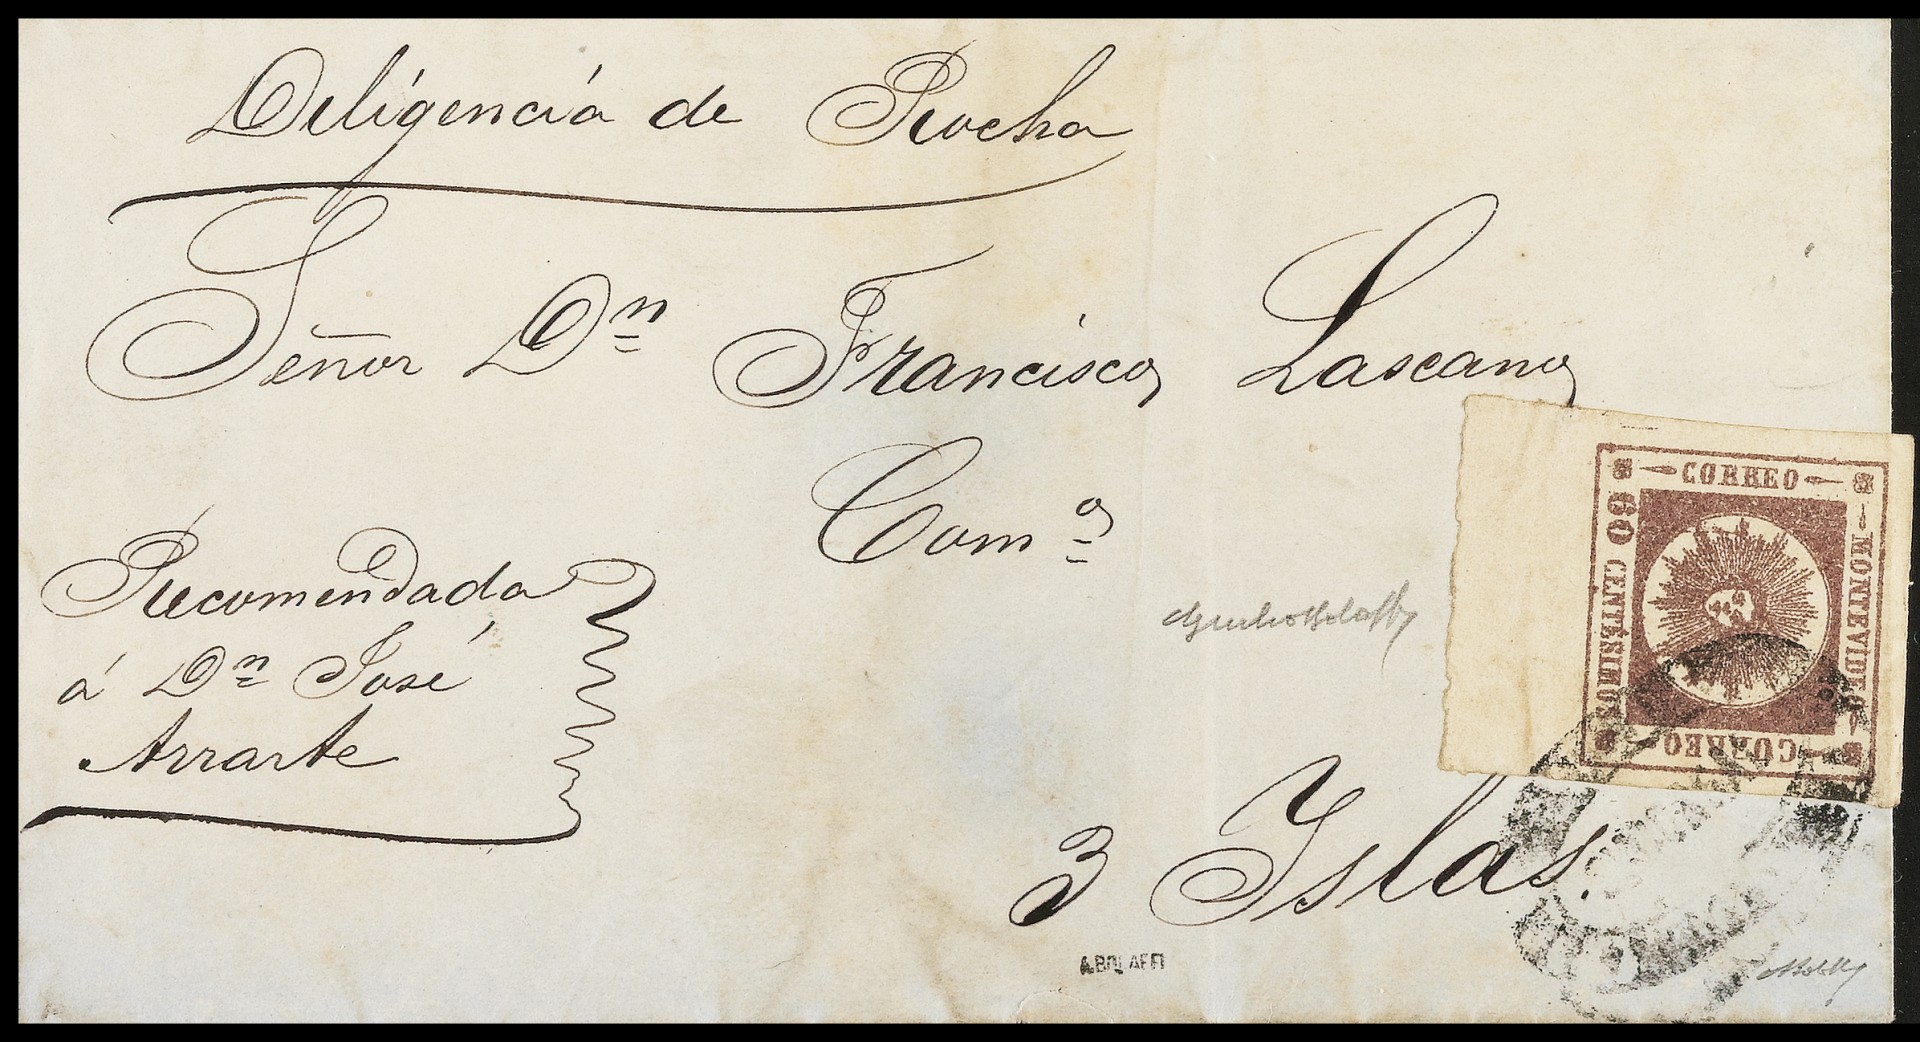 Diligencia de Rocha
Señor Dn Francisco Lascano
Como
Recomendada
á Dn José
Arrarte
3 Islas.
CORREO
60 CENTÉSIMOS
MONTEVIDEO
CORREO
A. BOLAFFI